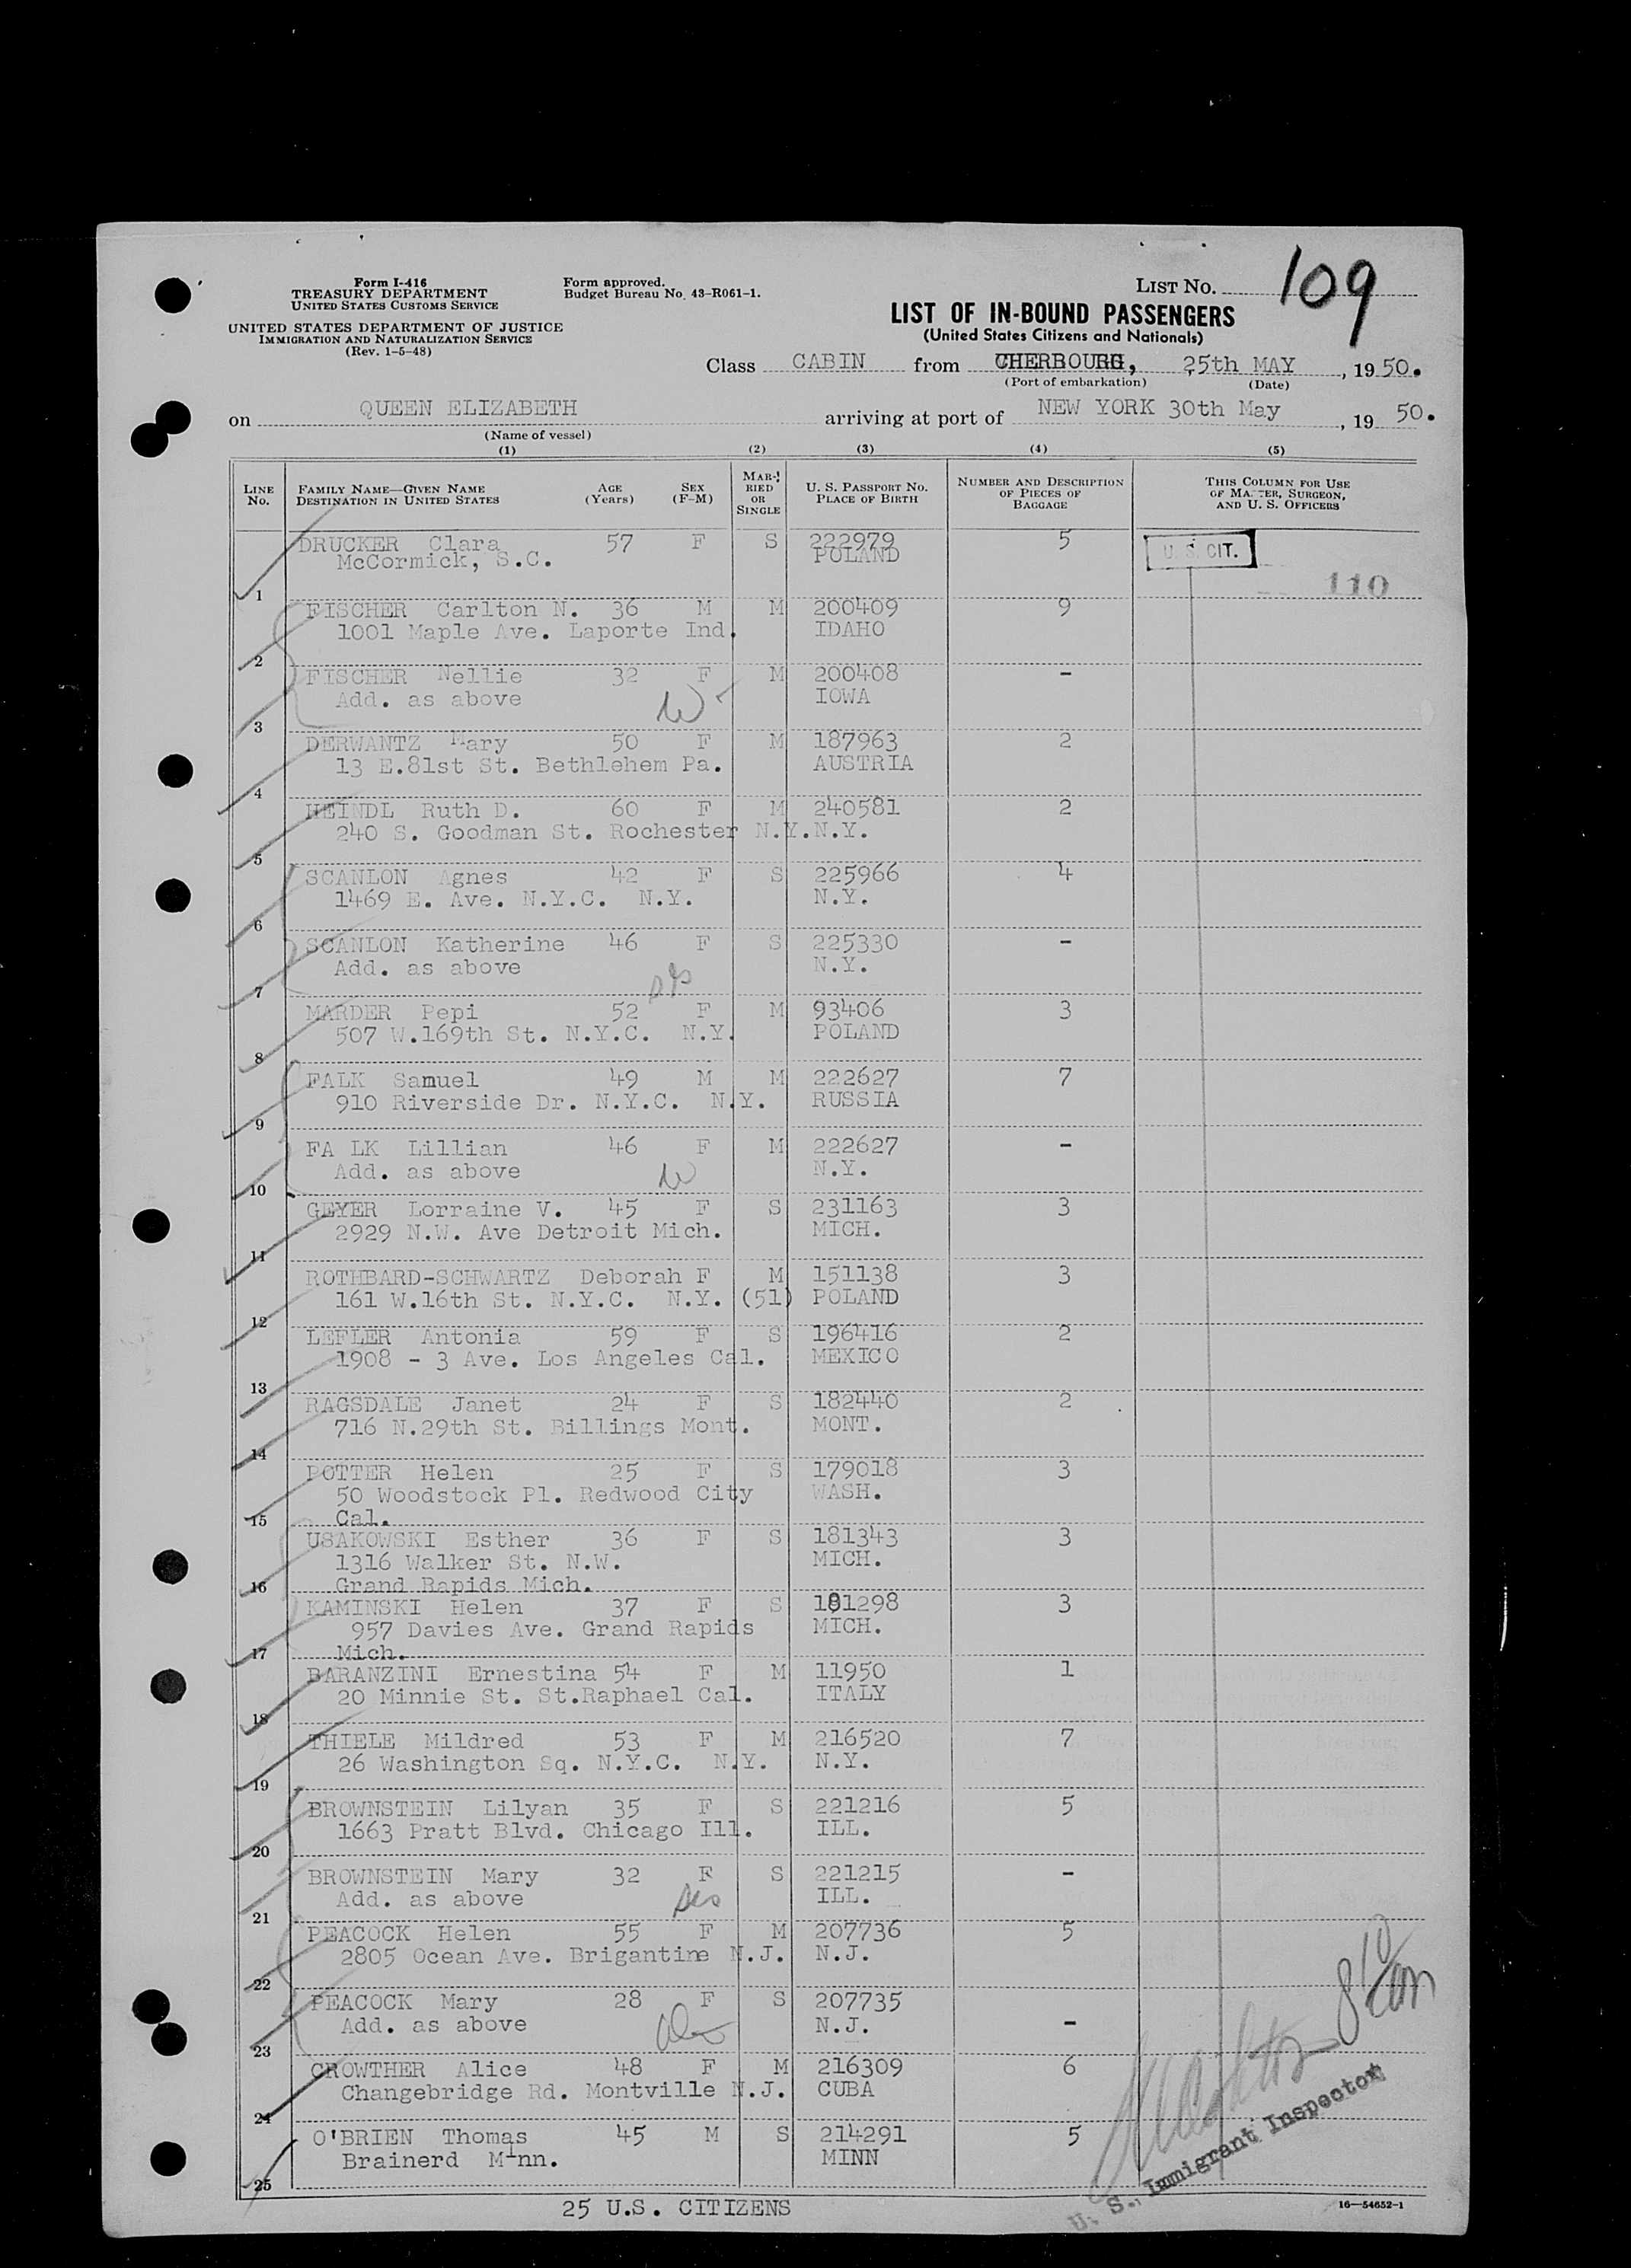 Form I-416
TREASURY DEPARTMENT
UNITED STATES CUSTOMS SERVICE
UNITED STATES DEPARTMENT OF JUSTICE
IMMIGRATION AND NATURALIZATION SERVICE
(Rev. 1-5-48)
Form approved.
Budget Bureau No. 43-R061-1.
LIST No. 109
LIST OF IN-BOUND PASSENGERS
(United States Citizens and Nationals)
Class CABIN from CHERBOURG, 25th MAY, 1950.
(Port of embarkation) (Date)
on QUEEN ELIZABETH arriving at port of NEW YORK 30th May, 19 50.
(Name of vessel)
(1) (2) (3) (4) (5)
LINE No. FAMILY NAME—GIVEN NAME DESTINATION IN UNITED STATES AGE (Years) SEX (F-M) MARRIED OR SINGLE U. S. PASSPORT No. PLACE OF BIRTH NUMBER AND DESCRIPTION OF PIECES OF BAGGAGE THIS COLUMN FOR USE OF MASTER, SURGEON, AND U. S. OFFICERS
DRUCKER Clara 57 F S 222979 5 U. S. CIT.
McCormick, S.C. POLAND
1 110
FISCHER Carlton N. 36 M M 200409 9
1001 Maple Ave. Laporte Ind. IDAHO
2
FISCHER Nellie 32 F M 200408 -
Add. as above W IOWA
3
DERWANTZ Mary 50 F M 187963 2
13 E.81st St. Bethlehem Pa. AUSTRIA
4
HEINDL Ruth D. 60 F M 240581 2
240 S. Goodman St. Rochester N.Y. N.Y.
5
SCANLON Agnes 42 F S 225966 4
1469 E. Ave. N.Y.C. N.Y. N.Y.
6
SCANLON Katherine 46 F S 225330 -
Add. as above N.Y.
7
MARDER Pepi 52 F M 93406 3
507 W.169th St. N.Y.C. N.Y. POLAND
8
FALK Samuel 49 M M 222627 7
910 Riverside Dr. N.Y.C. N.Y. RUSSIA
9
FA LK Lillian 46 F M 222627 -
Add. as above W N.Y.
10
GEYER Lorraine V. 45 F S 231163 3
2929 N.W. Ave Detroit Mich. MICH.
11
ROTHBARD-SCHWARTZ Deborah F M 151138 3
161 W.16th St. N.Y.C. N.Y. (51) POLAND
12
LEFLER Antonia 59 F S 196416 2
1908 - 3 Ave. Los Angeles Cal. MEXICO
13
RAGSDALE Janet 24 F S 182440 2
716 N.29th St. Billings Mont. MONT.
14
POTTER Helen 25 F S 179018 3
50 Woodstock Pl. Redwood City WASH.
15 Cal.
USAKOWSKI Esther 36 F S 181343 3
1316 Walker St. N.W. MICH.
16 Grand Rapids Mich.
KAMINSKI Helen 37 F S 181298 3
957 Davies Ave. Grand Rapids MICH.
17 Mich.
BARANZINI Ernestina 54 F M 11950 1
20 Minnie St. St.Raphael Cal. ITALY
18
THIELE Mildred 53 F M 216520 7
26 Washington Sq. N.Y.C. N.Y. N.Y.
19
BROWNSTEIN Lilyan 35 F S 221216 5
1663 Pratt Blvd. Chicago Ill. ILL.
20
BROWNSTEIN Mary 32 F S 221215 -
Add. as above ILL.
21
PEACOCK Helen 55 F M 207736 5
2805 Ocean Ave. Brigantine N.J. N.J.
22
PEACOCK Mary 28 F S 207735
Add. as above N.J. -
23
CROWTHER Alice 48 F M 216309 6
Changebridge Rd. Montville N.J. CUBA
24
O'BRIEN Thomas 45 M S 214291 5
Brainerd Minn. MINN
25
U. S. Immigrant Inspector
25 U.S. CITIZENS
16—54652-1